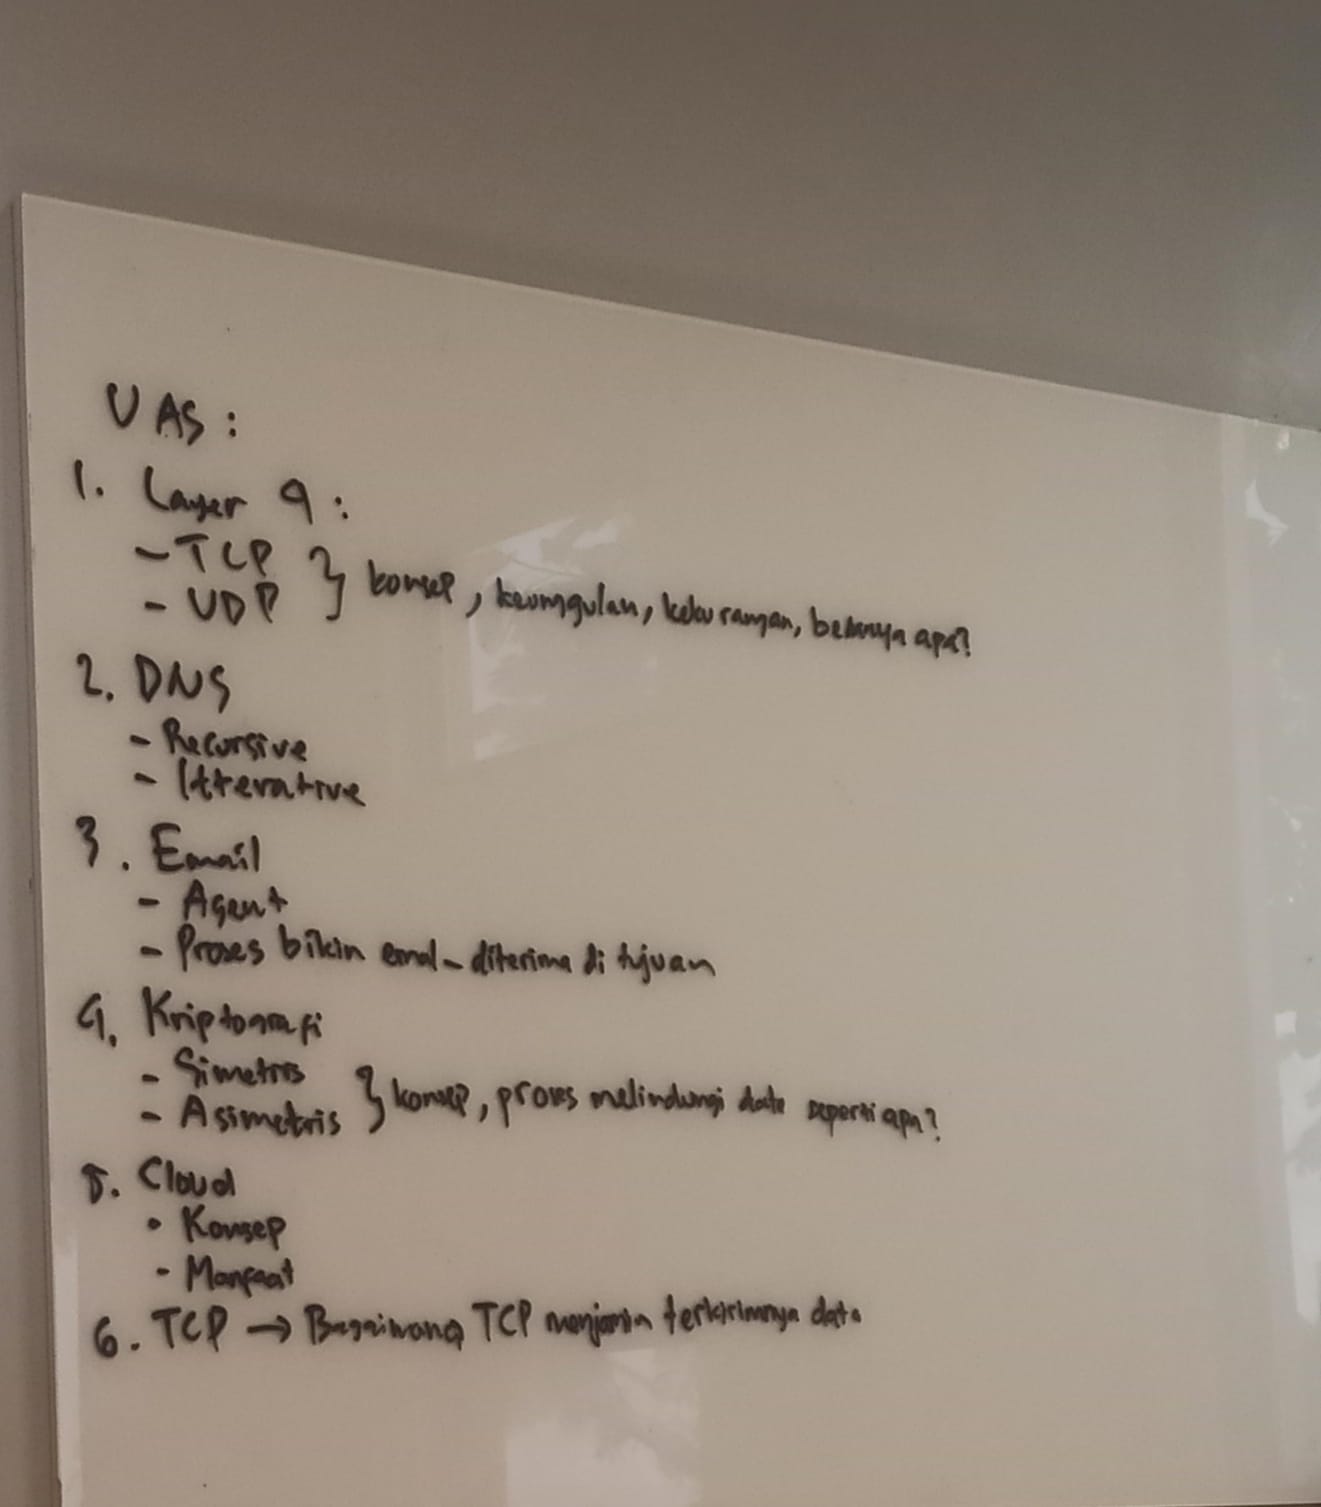 UAS :
1. Layer 4 :
- TCP
- UDP } konsep, keunggulan, kekurangan, bedanya apa?
2. DNS
- Recursive
- Itterative
3. Email
- Agent
- Proses bikin emal - diterima di tujuan
4. Kriptografi
- Simetris
- Asimetris } konsep, proses melindungi data seperti apa?
5. Cloud
• Konsep
- Manfaat
6. TCP → Bagaimana TCP menjamin terkirimnya data